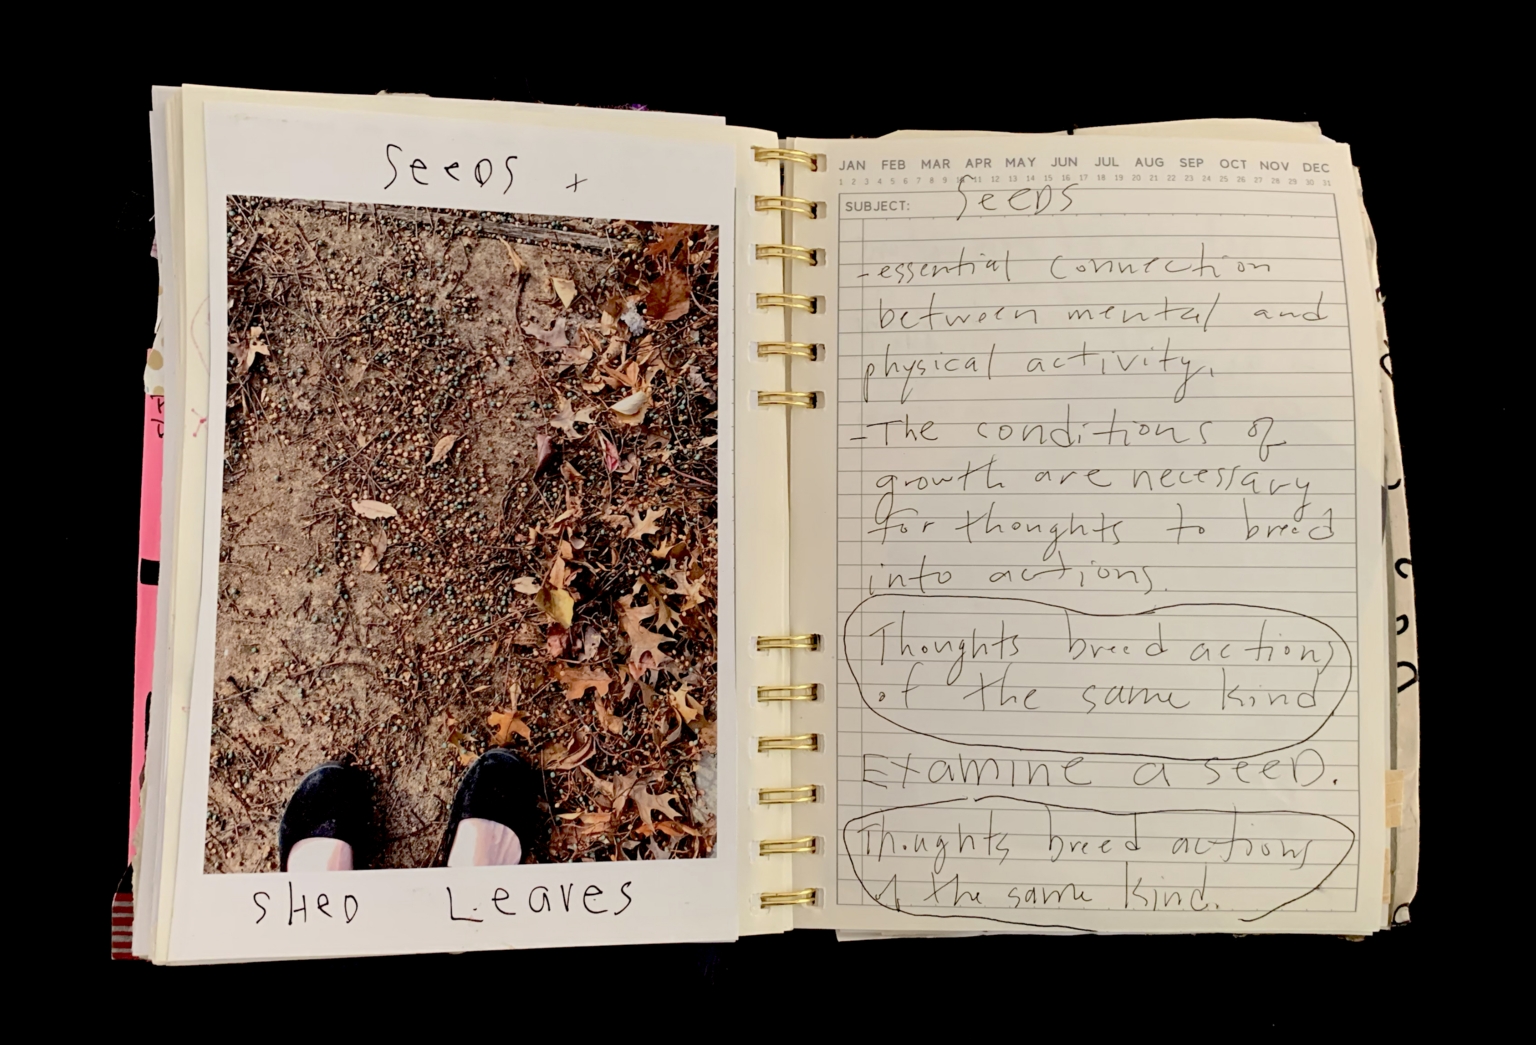 Seeds +
Shed Leaves
JAN FEB MAR APR MAY JUN JUL AUG SEP OCT NOV DEC
1 2 3 4 5 6 7 8 9 10 11 12 13 14 15 16 17 18 19 20 21 22 23 24 25 26 27 28 29 30 31
SUBJECT: Seeds
- essential connection
between mental and
physical activity.
- The conditions of
growth are necessary
for thoughts to breed
into actions.
Thoughts breed actions
of the same kind
Examine a seed.
Thoughts breed actions
of the same kind.